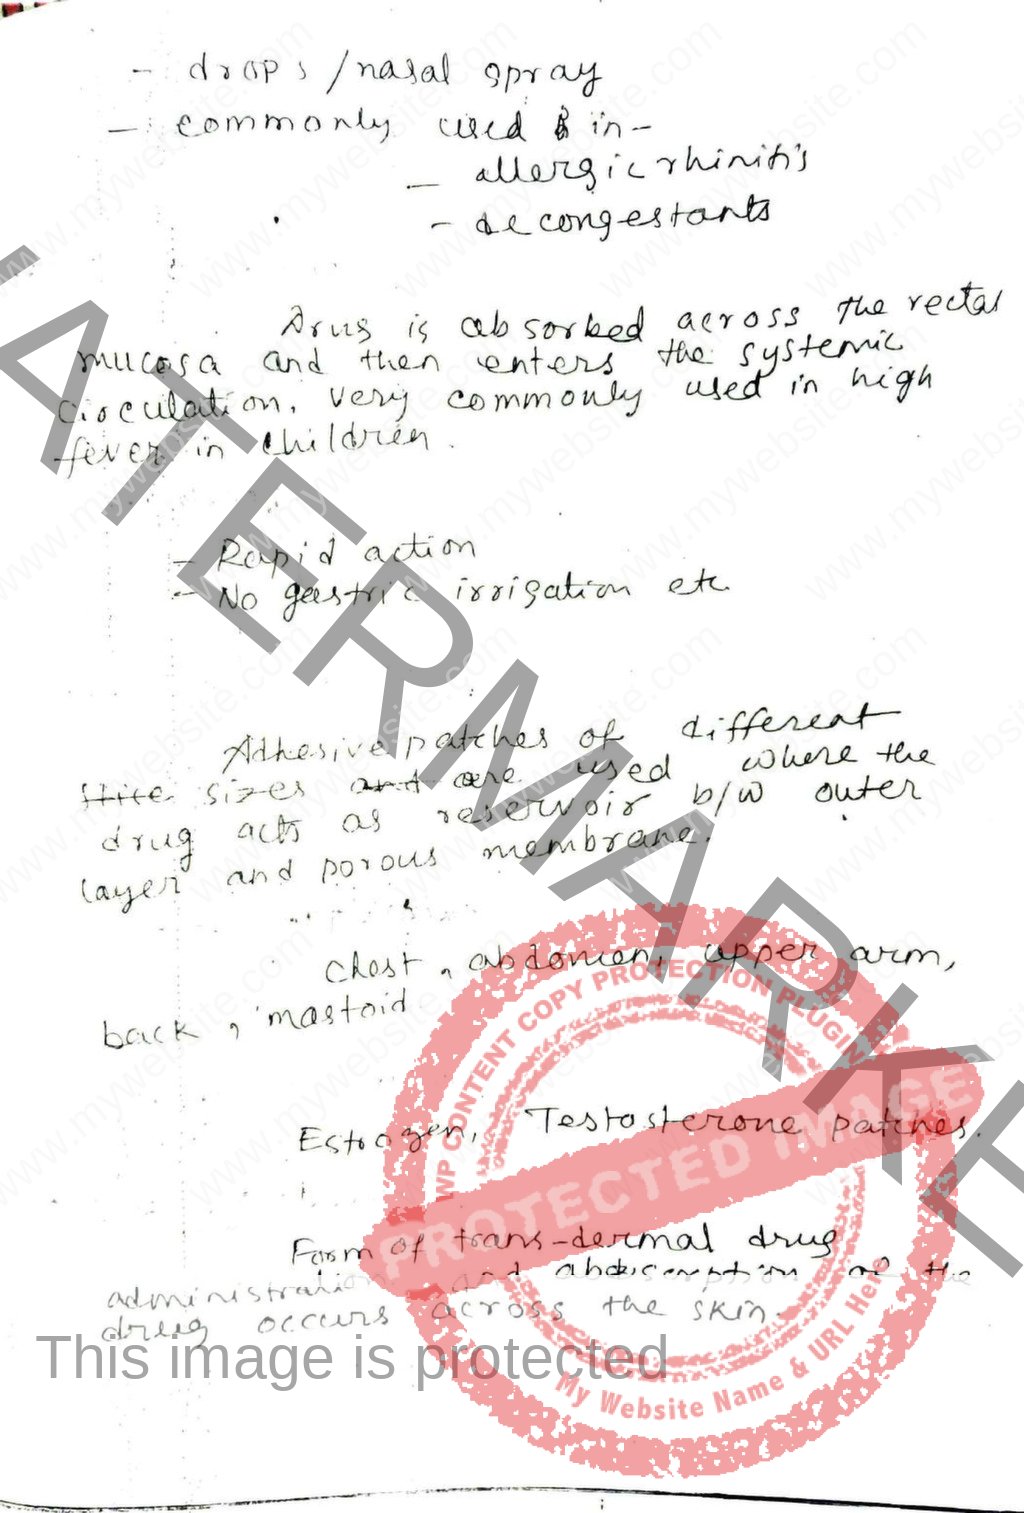 - drops / nasal spray
- commonly used in -
- allergic rhinitis
- decongestants
Drug is absorbed across the rectal
mucosa and then enters the systemic
circulation. Very commonly used in high
fever in children.
- Rapid action
- No gastric irrigation etc
Adhesive patches of different
sizes are used where the
drug acts as reservoir b/w outer
layer and porous membrane.
Chest, abdomen, upper arm,
back, mastoid
Estrogen, Testosterone patches.
Form of trans-dermal drug
administration and of the
drug occurs across the skin.
WATERMARKE
WP CONTENT COPY PROTECTION PLUGIN
PROTECTED IMAGE
My Website Name & URL Here
This image is protected
www.mywebsite.com